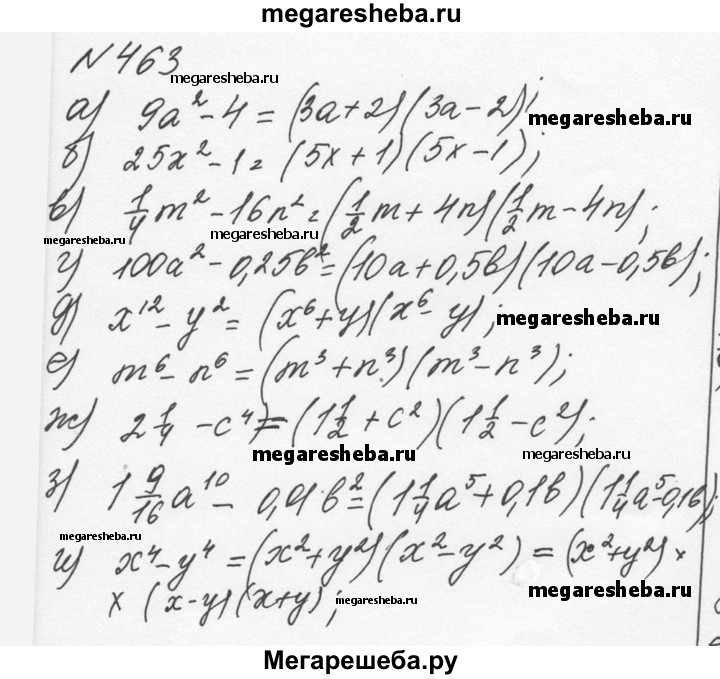 megaresheba.ru
№463
megaresheba.ru
а) 9a² - 4 = (3a + 2)(3a - 2);
megaresheba.ru
б) 25x² - 1 = (5x + 1)(5x - 1);
в) 1/4 m² - 16n² = (1/2 m + 4n)(1/2 m - 4n);
megaresheba.ru
megaresheba.ru
г) 100a² - 0,25b² = (10a + 0,5b)(10a - 0,5b);
д) x¹² - y² = (x⁶ + y)(x⁶ - y);
megaresheba.ru
е) m⁶ - n⁶ = (m³ + n³)(m³ - n³);
ж) 2 1/4 - c⁴ = (1 1/2 + c²)(1 1/2 - c²);
megaresheba.ru
з) 1 9/16 a¹⁰ - 0,01b² = (1 1/4 a⁵ + 0,1b)(1 1/4 a⁵ - 0,1b);
megaresheba.ru
и) x⁴ - y⁴ = (x² + y²)(x² - y²) = (x² + y²) ×
× (x - y)(x + y);
megaresheba.ru
megaresheba.ru
Мегарешеба.ру